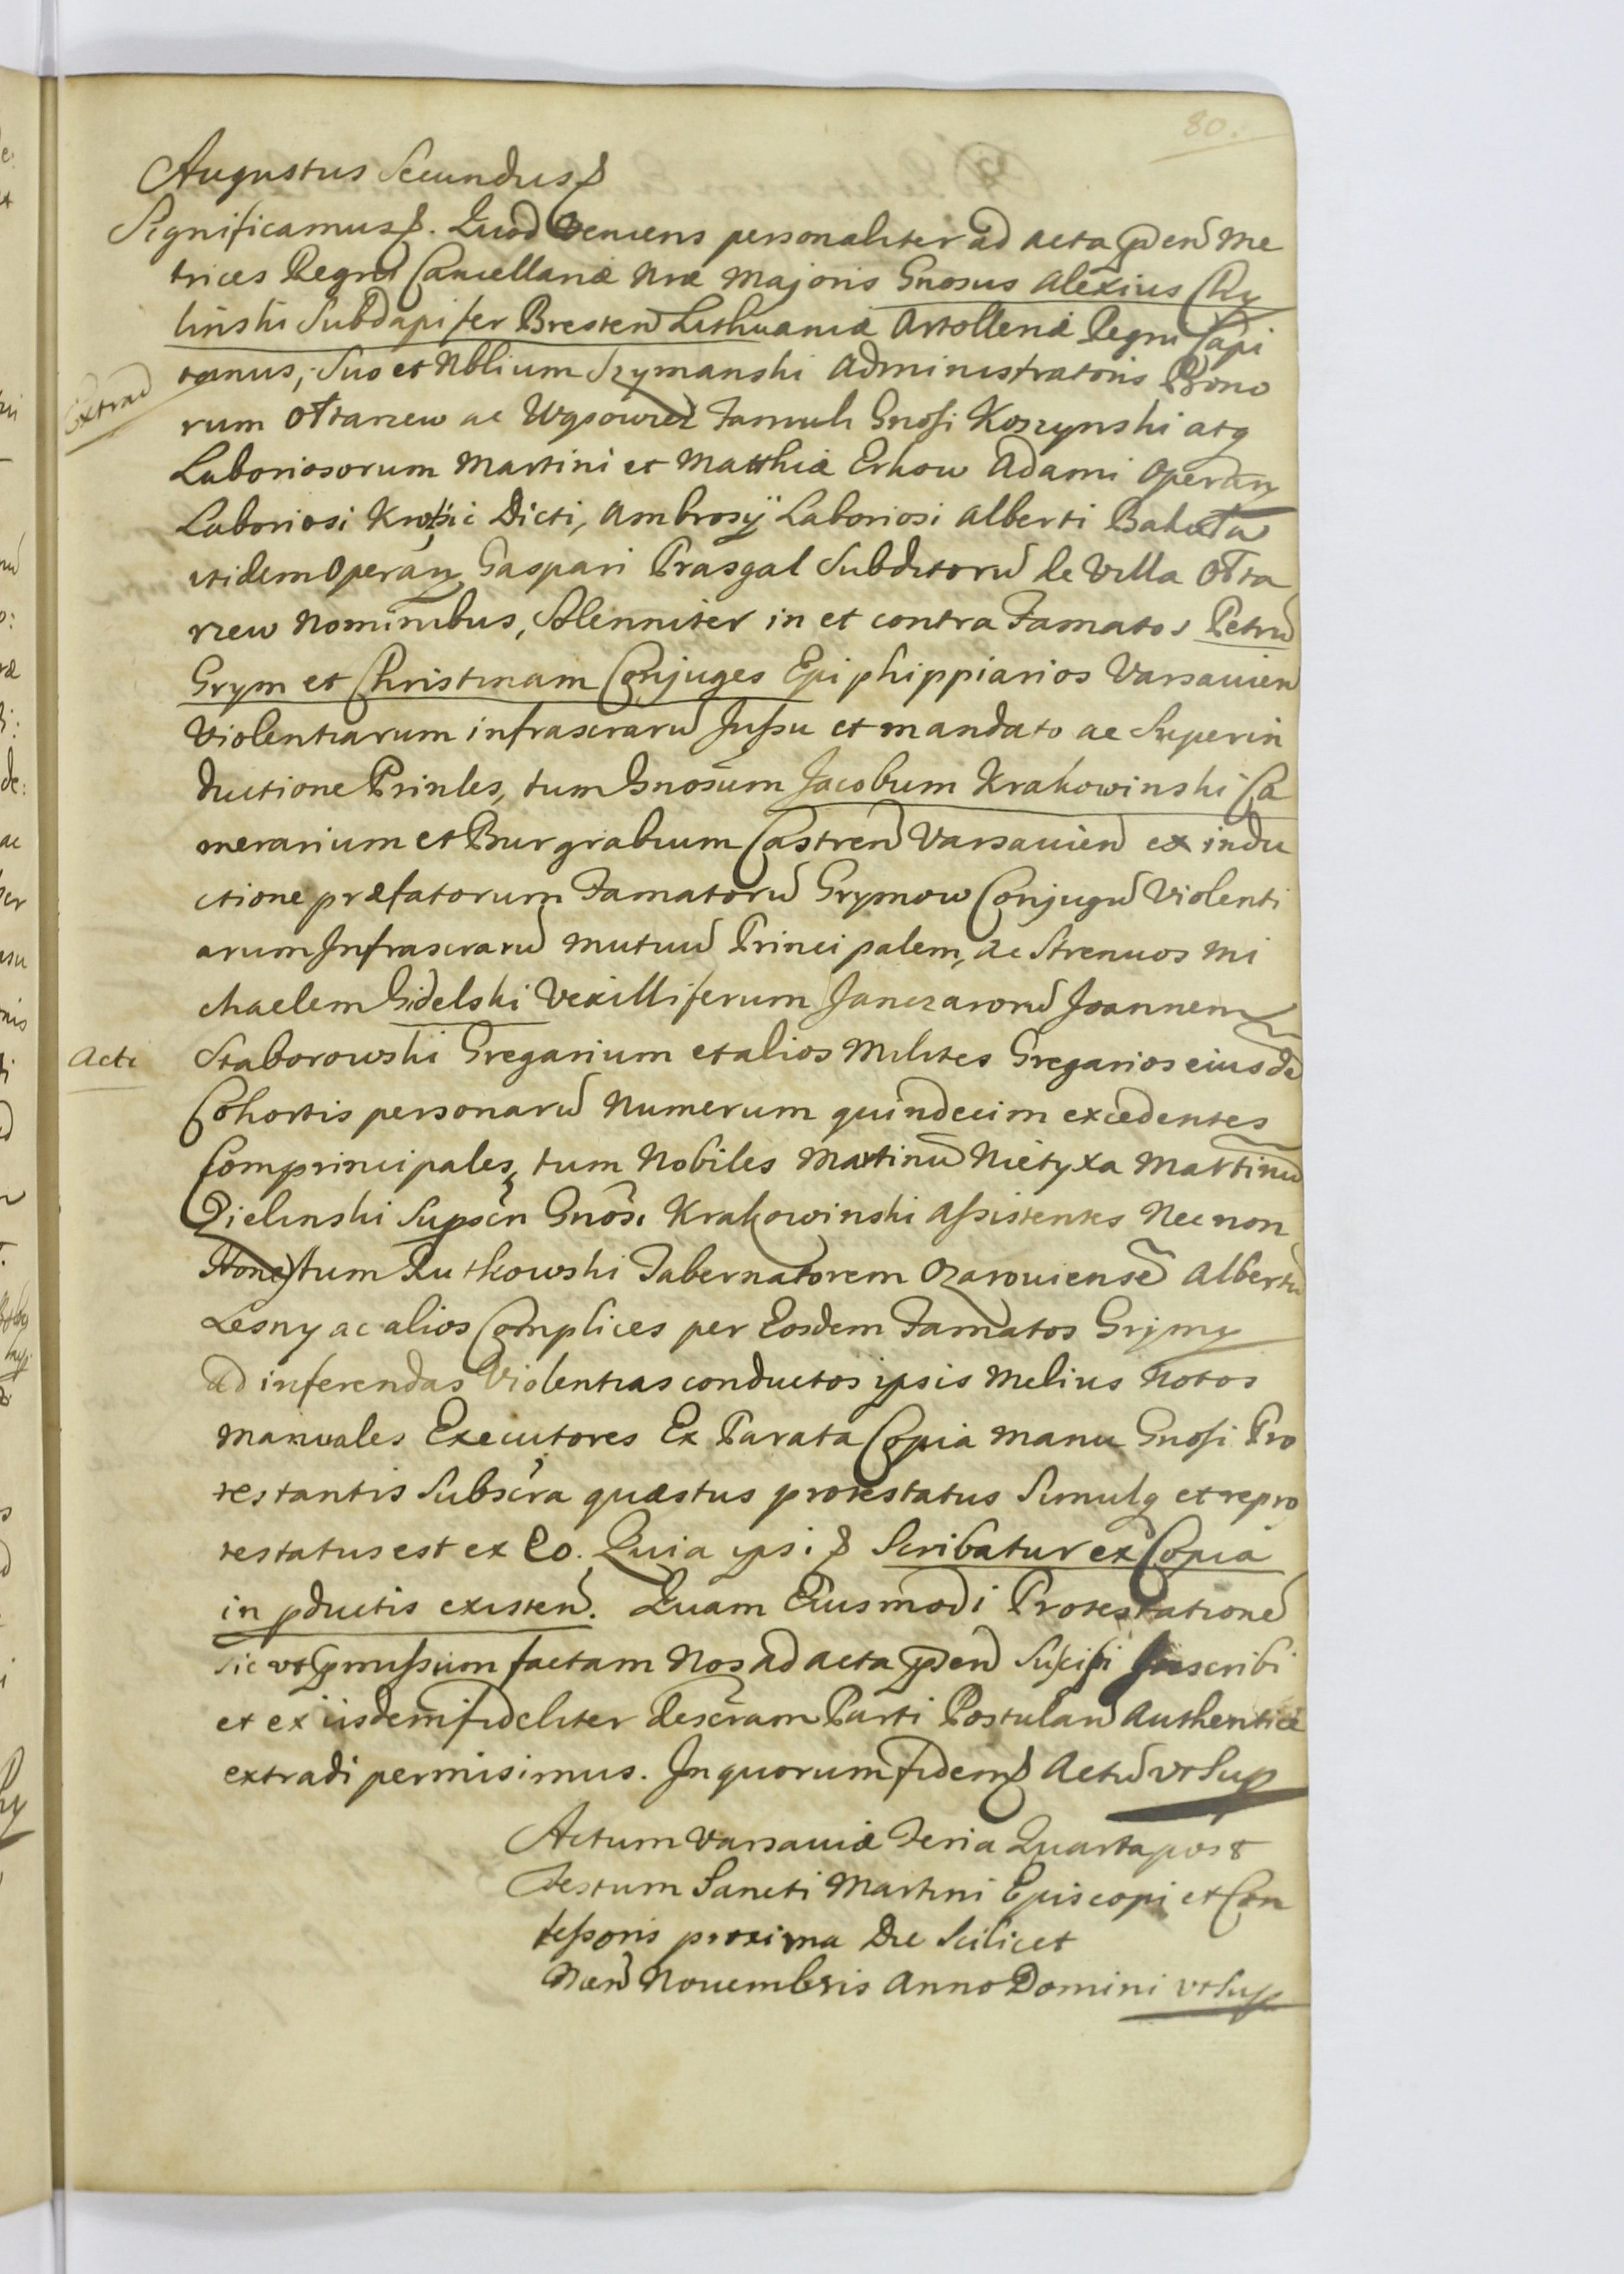 80.
Augustus Secundus
Significamus. Quod veniens personaliter ad acta pñ Me
trices Regni Cancellariæ Nræ Majoris Gnosus Alexius Chy
linski Subdapifer Bresten Lithuaniæ Artolleriæ Regni Capi
taneus, Suo et Nblium Szymanski Administratoris Bono
Extrad
rum Ołtarzew ac Famuli Gnosi Koszynski atq
Laboriosorum Martini et Matthiæ Erkow Adami Operary
Laboriosi Dicti, Ambrosÿ Laboriosi Alberti
itidem Operary Gaspari Prasgal Subditorũ de Villa Ołta
rzew Nominibus, Solenniter in et contra Famatos Petrũ
Grym et Christinam Conjuges Epiphippiarios Varsavien
Violentiarum infrascrarũ Jussu et mandato ac Superin
ductione Prinles, tum Gnosum Jacobum Krakowinski Ca
merarium et Burgrabium Castren Varsavien ex indu
ctione præfatorum Famatorũ Grymow Conjugũ Violenti
arum Infrascrarũ mutuũ Principalem, ac Strenuos Mi
chaelem Gidelski Vexilliferum Janczarorũ Joannem
Acti
Staborowski Gregarium et alios Milites Gregarios eiusdẽ
Cohortis personarũ Numerum quindecim excedentes
Comprincipales, tum Nobiles Martinũ Nietyxa Martinũ
Zielinski Gnosi Krakowinski Assistentes Nec non
Honestum Rutkowski Tabernatorem Ozaroviensẽ Albertũ
Lesny ac alios Complices per Eosdem Famatos Grymy
ad inferendas Violentias conductos ipsis Melius Notos
Manuales Executores Ex Parata Copia Manu Gnosi Pro
testantis Subscra quæstus protestatus Simulq et repro
testatus est ex Eo. Quia ipsi Scribatur ex Copia
in pductis existen. Quam Eiusmodi Protestationẽ
sic ut pmissum factam Nos ad acta pñ Suscipi Inscribi
et ex iisdem fideliter descram Parti Postulan Authentice
extradi permisimus. In quorum fidem Actũ ut Sup
Actum Varsaviæ Feria Quarta post
Festum Sancti Martini Episcopi et Con
fessoris proxima Die Scilicet
Novembris Anno Domini ut Sup